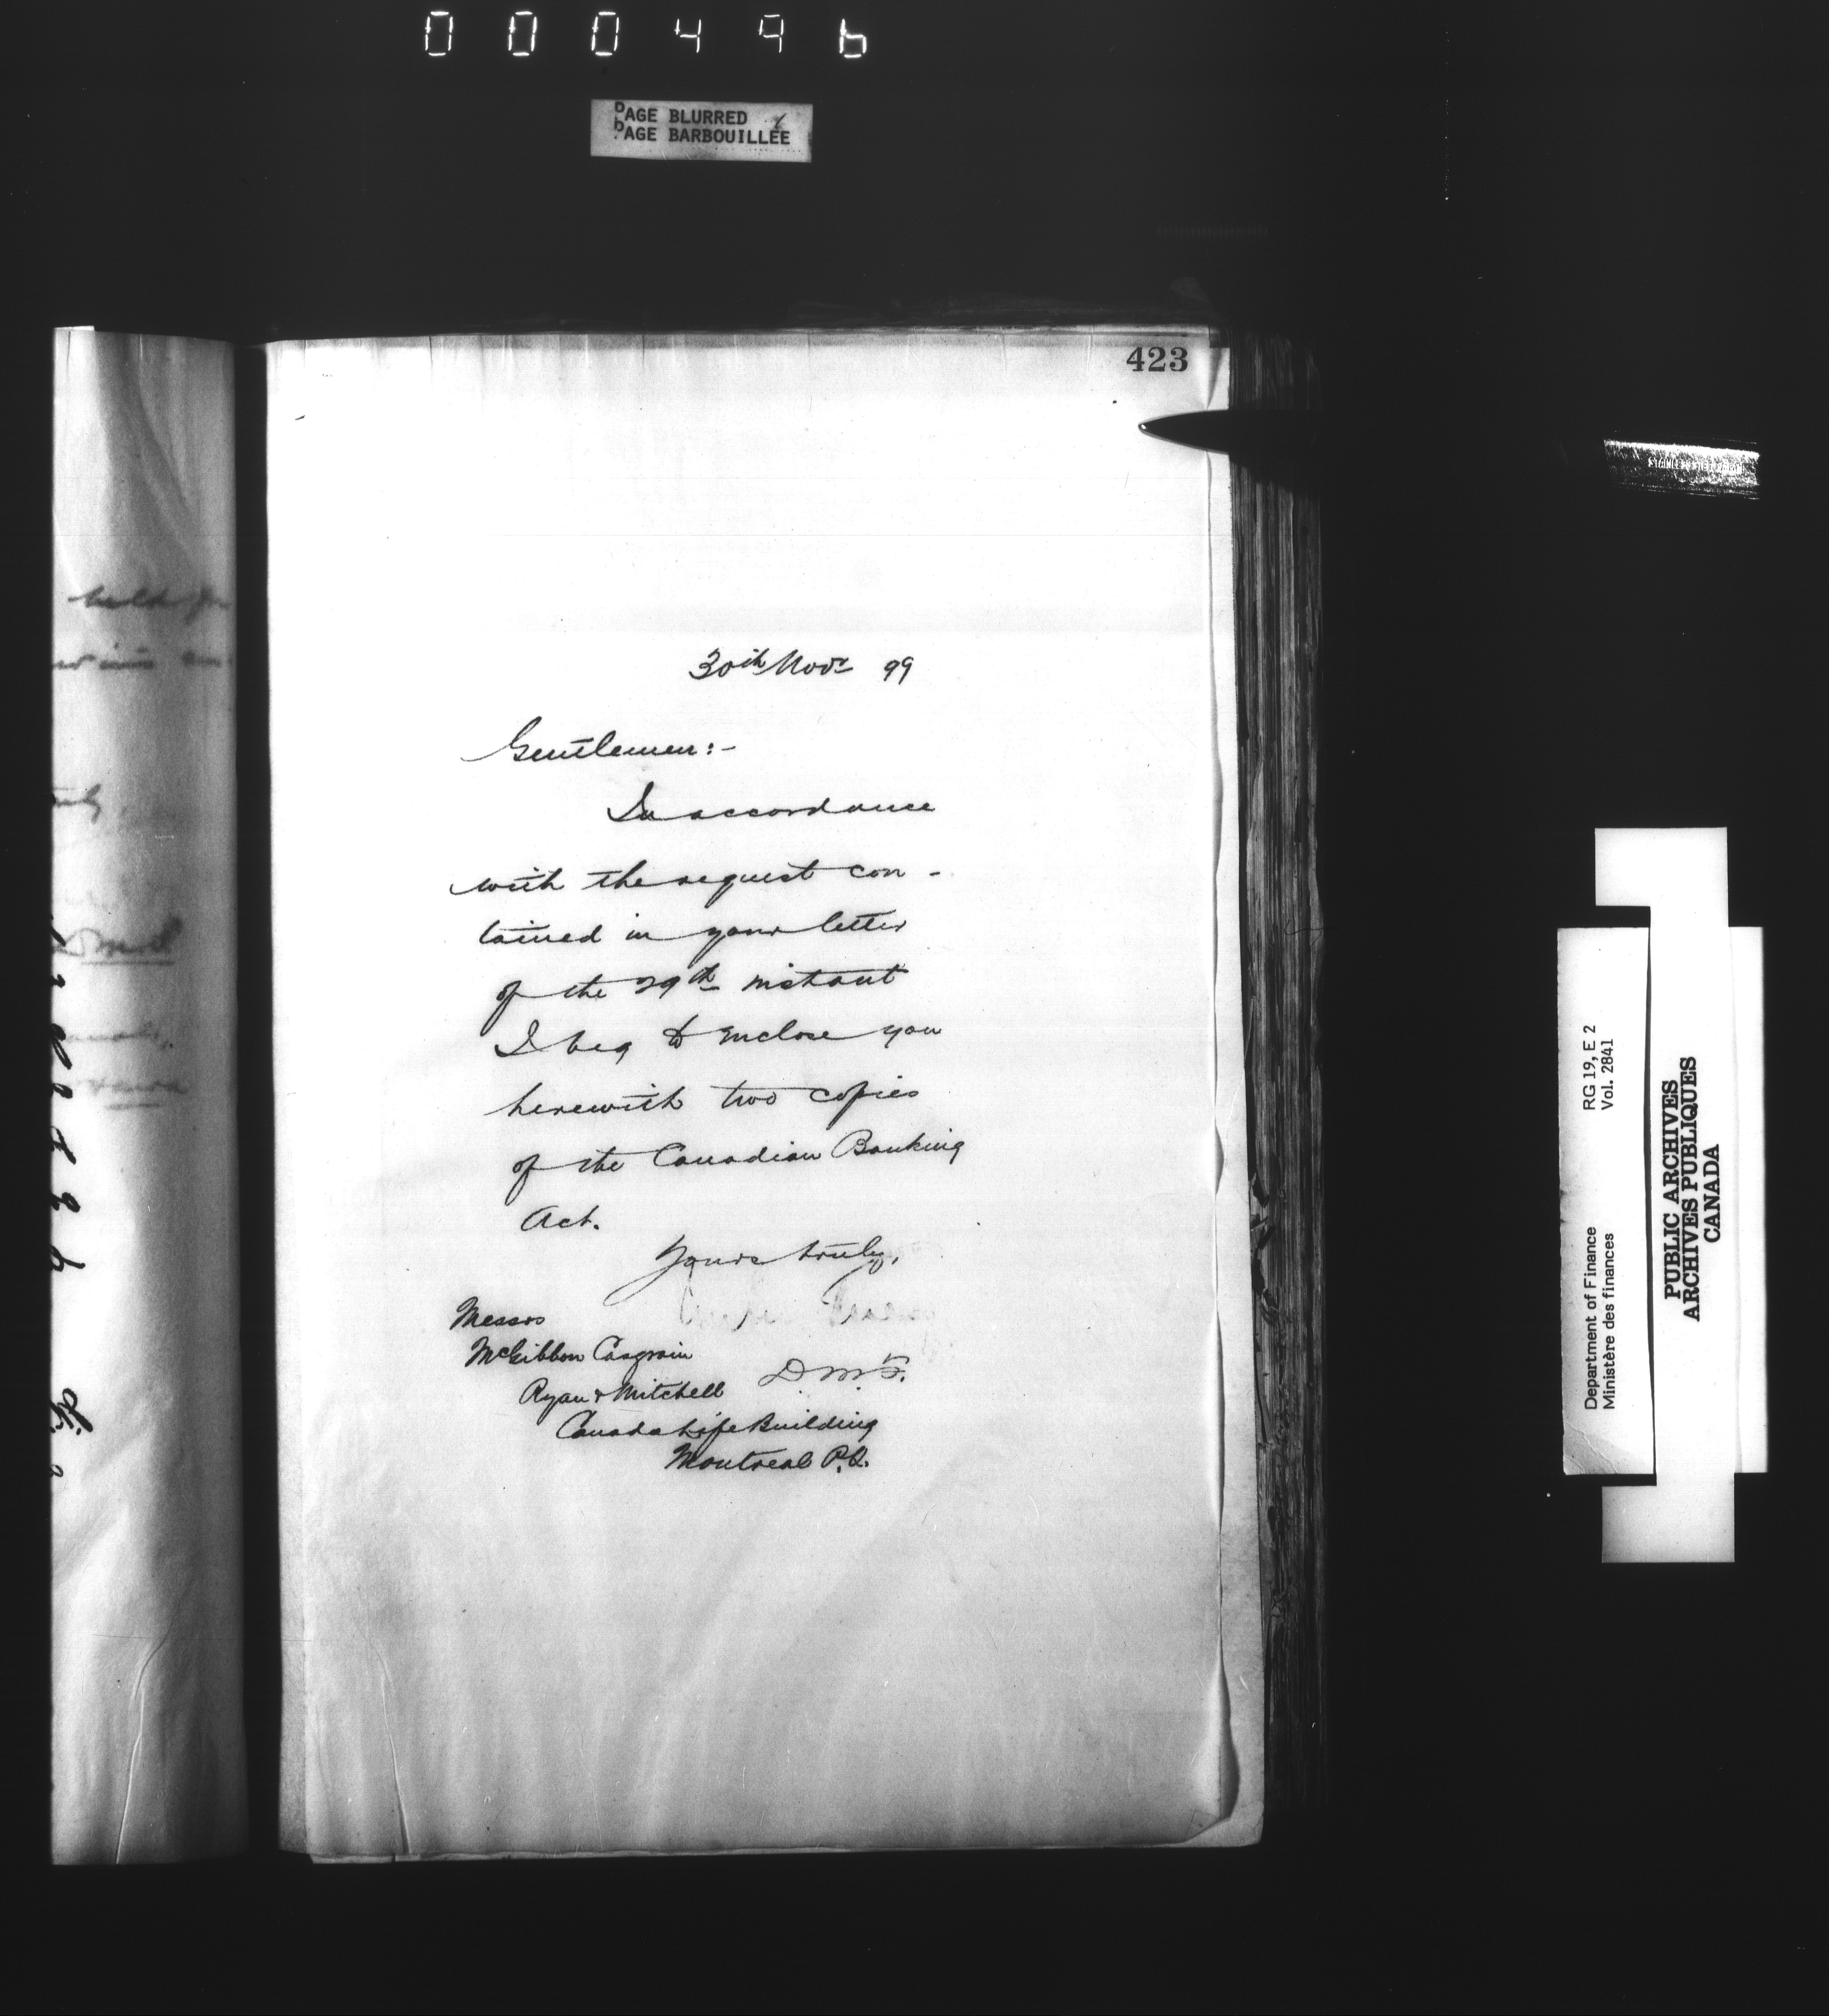 000496
PAGE BLURRED
PAGE BARBOUILLÉE
423
30th Novr 99
Gentlemen:-
In accordance
with the request con-
tained in your letter
of the 29th instant
I beg to enclose you
herewith two copies
of the Canadian Banking
Act.
Yours truly,
D M F.
Messrs
McGibbon Casgrain
Ryan & Mitchell
Canada Life Building
Montreal P.Q.
Department of Finance RG 19, E 2
Ministère des finances Vol. 2841
PUBLIC ARCHIVES
ARCHIVES PUBLIQUES
CANADA